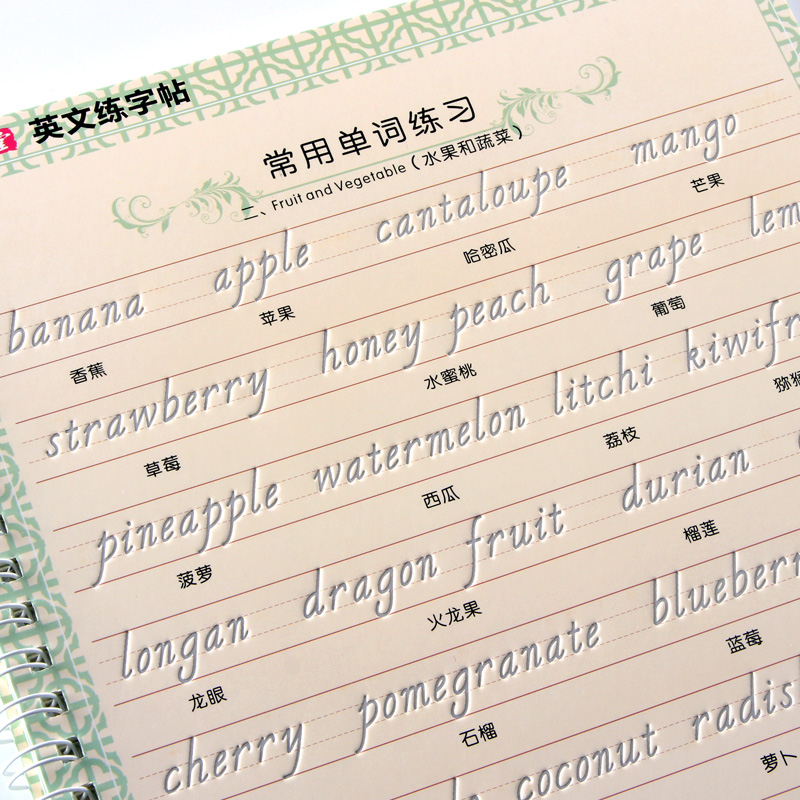 英文练字帖
常用单词练习
二、Fruit and Vegetable（水果和蔬菜）
banana apple cantaloupe mango
香蕉 苹果 哈密瓜 芒果
strawberry honey peach grape lem
草莓 水蜜桃 葡萄
pineapple watermelon litchi kiwifr
菠萝 西瓜 荔枝 猕猴
longan dragon fruit durian
龙眼 火龙果 榴莲
cherry pomegranate blueberr
石榴 蓝莓
coconut radis
萝卜